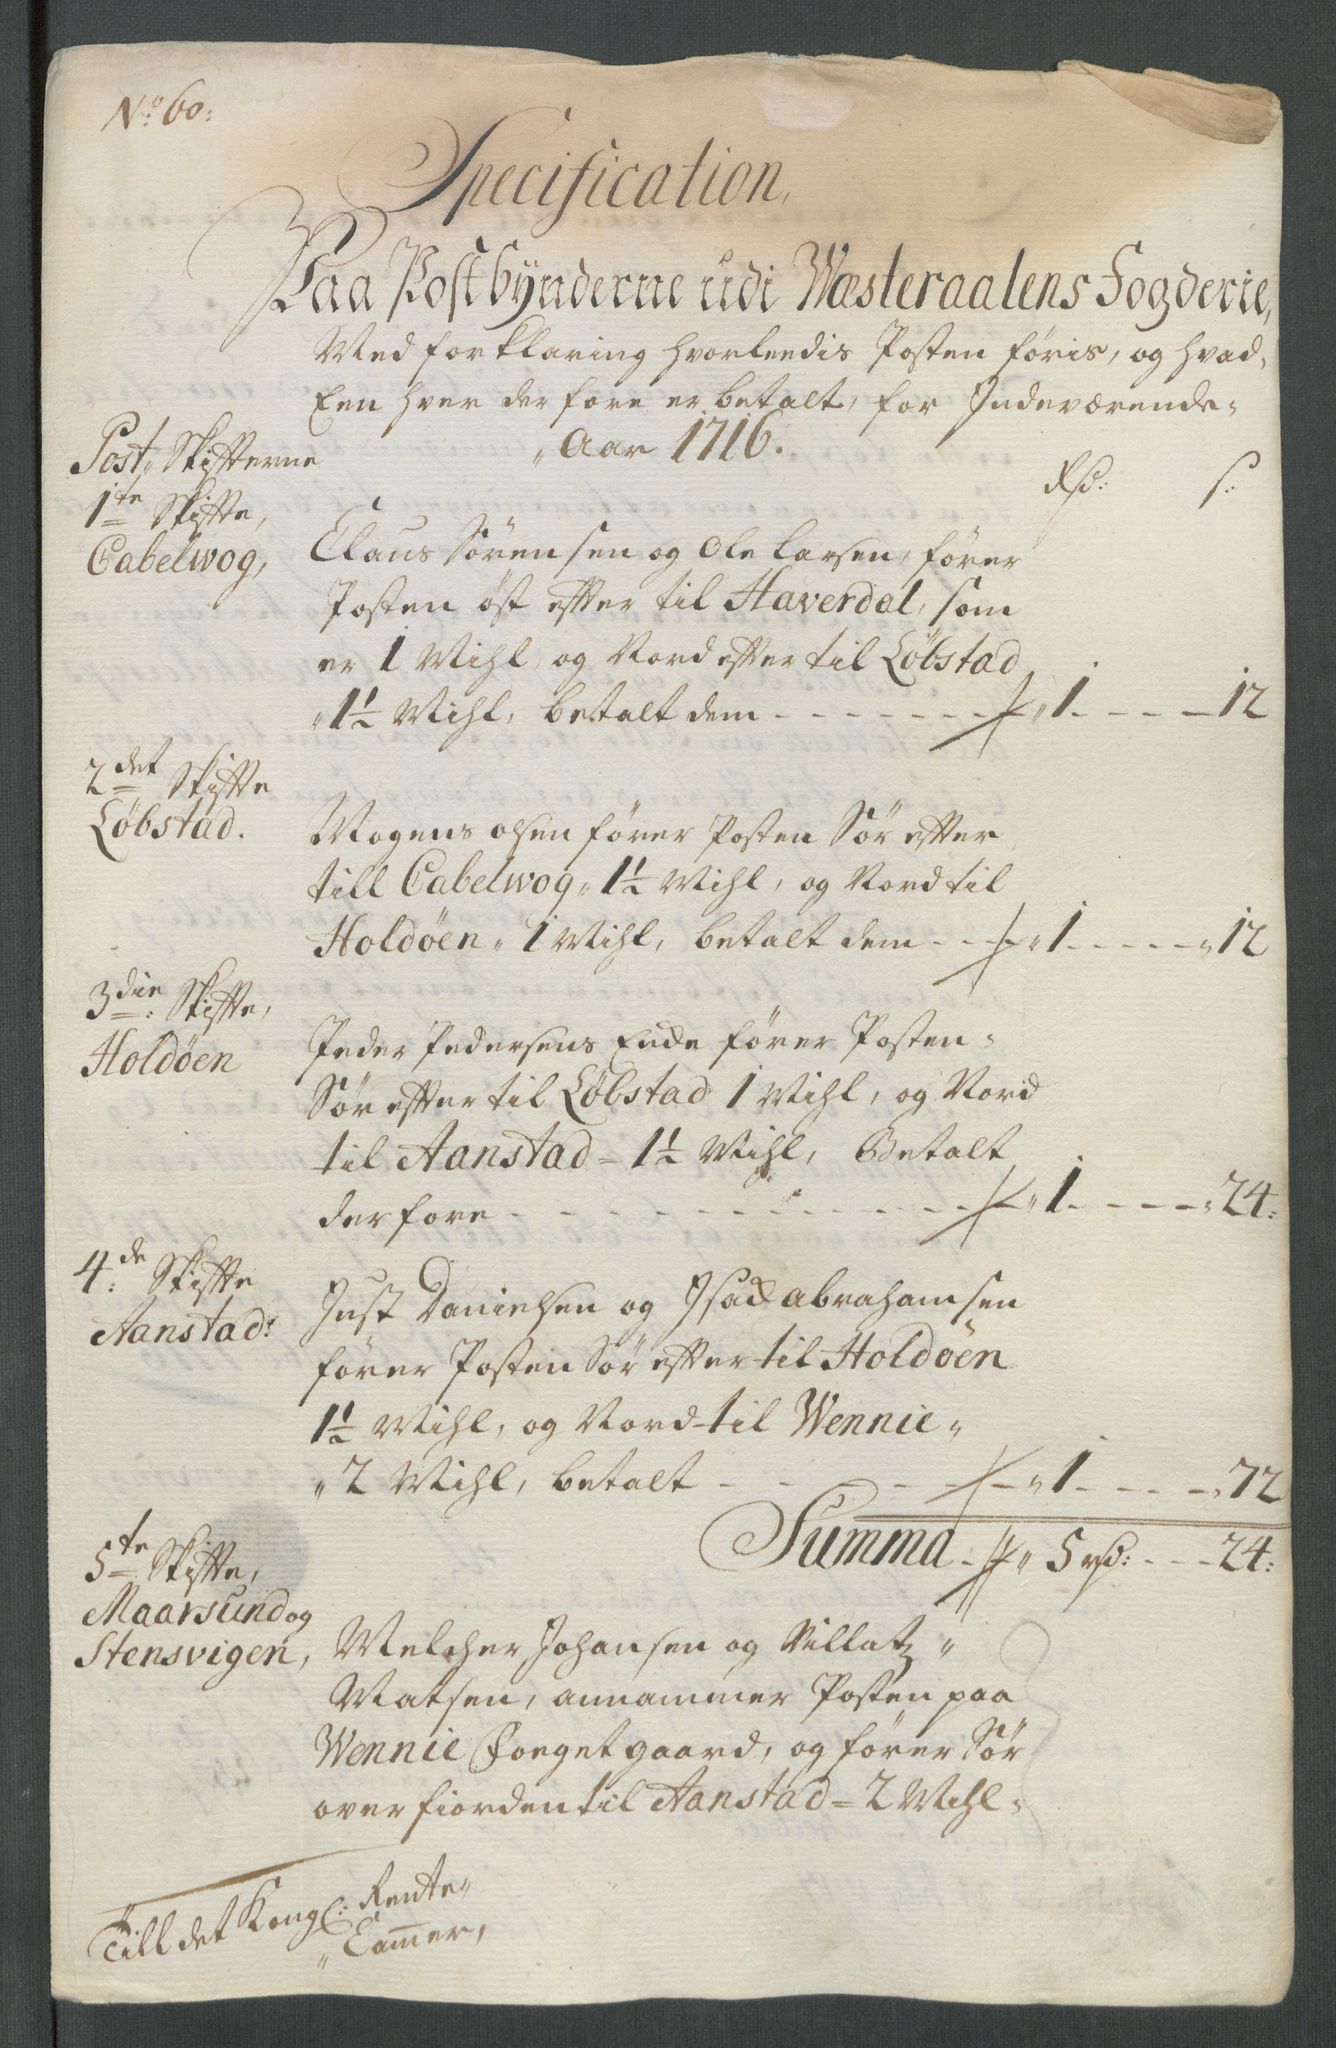 No: 60:
Specification,
Paa Postbÿnderne udi Wæsteraalens Fogderie,
Med forklaring hvorleedis Posten føris, og hvad
Een hver derfore er betalt, for Indeværende
Aar 1716.
Post Skifterne
Rd: s:
1te Skifte,
Cabelwog,
Claus Sørensen og Ole Larsen, fører
Posten øst effter til Haverdal, som
er 1 Mihl og Nord effter til Løbstad
1½ Mihl, betalt dem - - - 1 - - - 12
2det Skifte
Løbstad.
Mogens olsen fører Posten Sør effter
till Cabelwog 1½ Mihl, og Nord til
Holdøen 1 Mihl, betalt dem - - - 1 - - - 12
3die: Skifte,
Holdøen
Peder Pedersens Encke fører Posten
Sør effter til Løbstad 1 Mihl, og Nord
til Aanstad 1½ Mihl, Betalt
derfore - - - 1 - - - 24:
4de: Skifte
Aanstad:
Just Danielsen og Isach abrahamsen
fører Posten Sør effter til Holdøen
1½ Mihl, og Nord til Wennie
2 Mihl, betalt - - - 1 - - - 72
Summa - 5 rd: - - - 24:
5te Skifte,
Maarsund og
Stensvigen,
Melcher Johansen og Villatz
Matsen, annammer Posten paa
Wennie Foeget gaard, og fører Sør
over fiorden til Aanstad = 2 Mihl
Till det Kongl: Rente
Cammer,